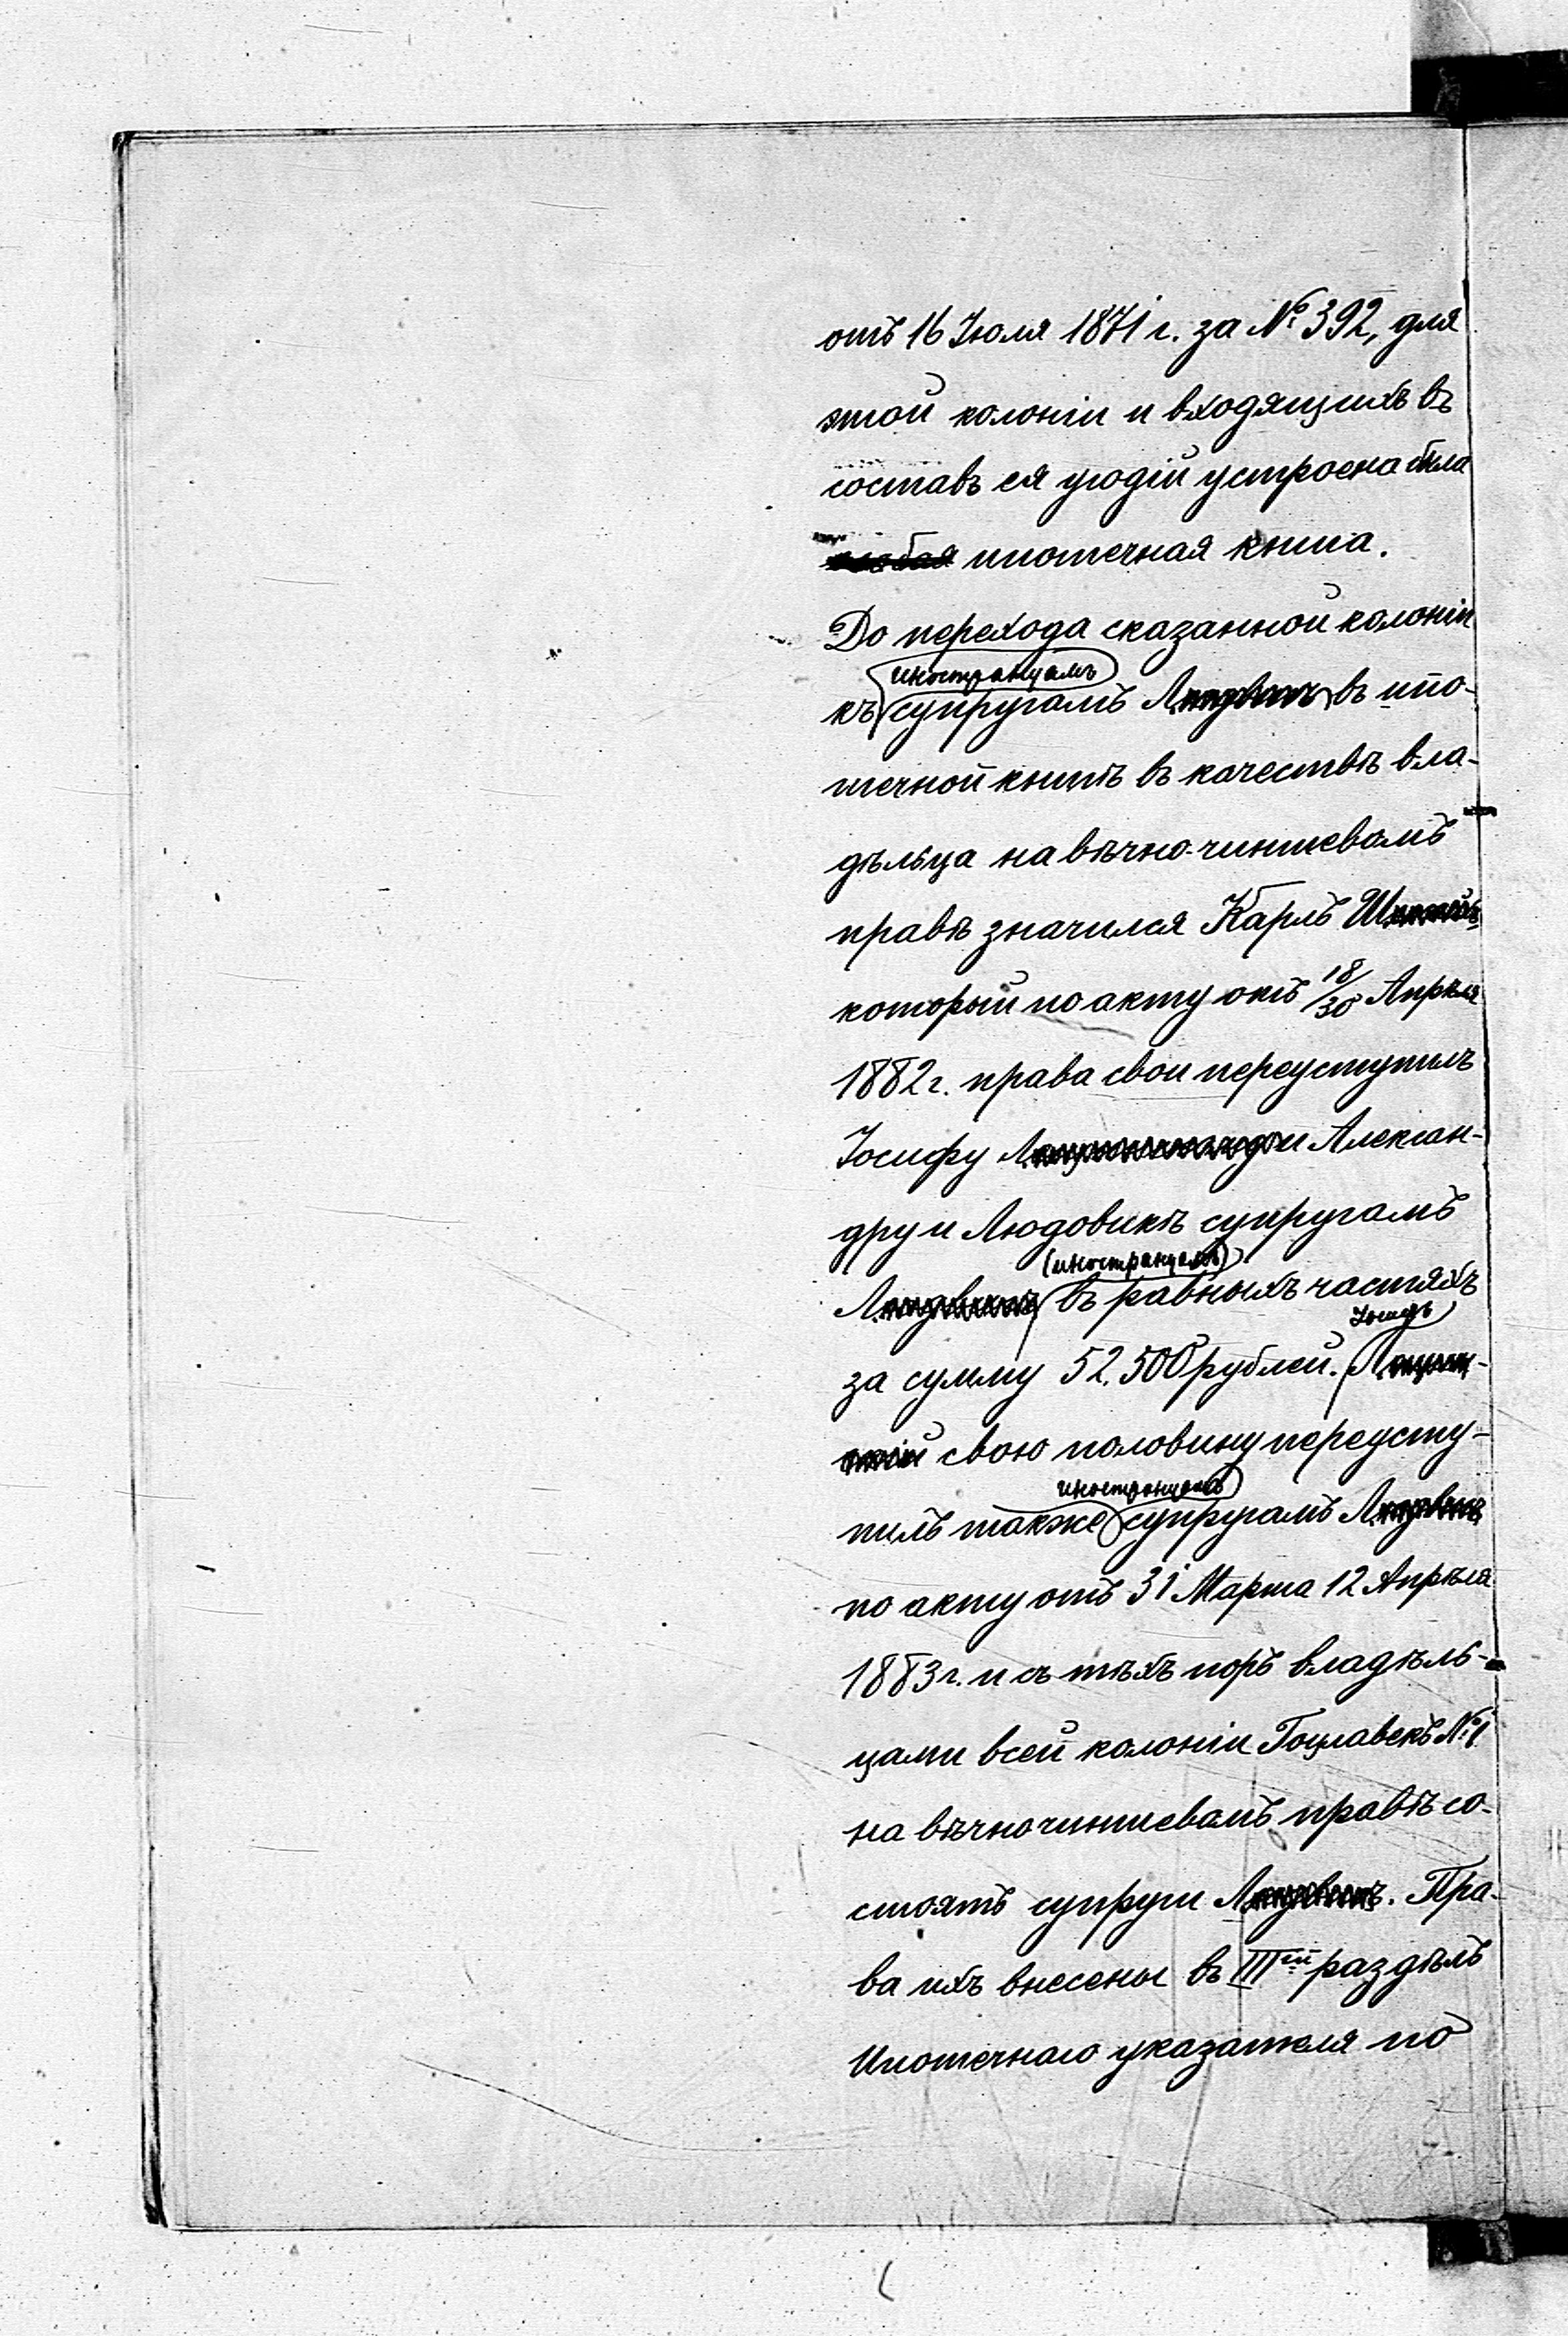 отъ 16 Іюля 1871 г. за № 392, для
этой колоніи и входящихъ въ
составъ ея угодій устроена была
ипотечная книга.
До перехода сказанной колоніи
иностранцамъ
къ супругамъ Л. въ ипо-
течной книгѣ въ качествѣ вла-
дѣльца на вѣчно-чиншевомъ
правѣ значился Карлъ Ш.
который по акту отъ 18/30 Апрѣля
1882 г. права свои переуступилъ
Іосифу Л. и Алексан-
дру и Людовикѣ супругамъ
(иностранцамъ)
Л. въ равныхъ частяхъ
Іосифъ
за сумму 52.500 рублей. Л.
свою половину переусту-
иностранцамъ
пилъ также супругамъ Л.
по акту отъ 31 Марта 12 Апрѣля
1883 г. и съ тѣхъ поръ владѣль-
цами всей колоніи Гоцлавекъ № 1
на вѣчно чиншевомъ правѣ со-
стоятъ супруги Л. Пра-
ва ихъ внесены въ IIIей раздѣлъ
Ипотечнаго указателя по